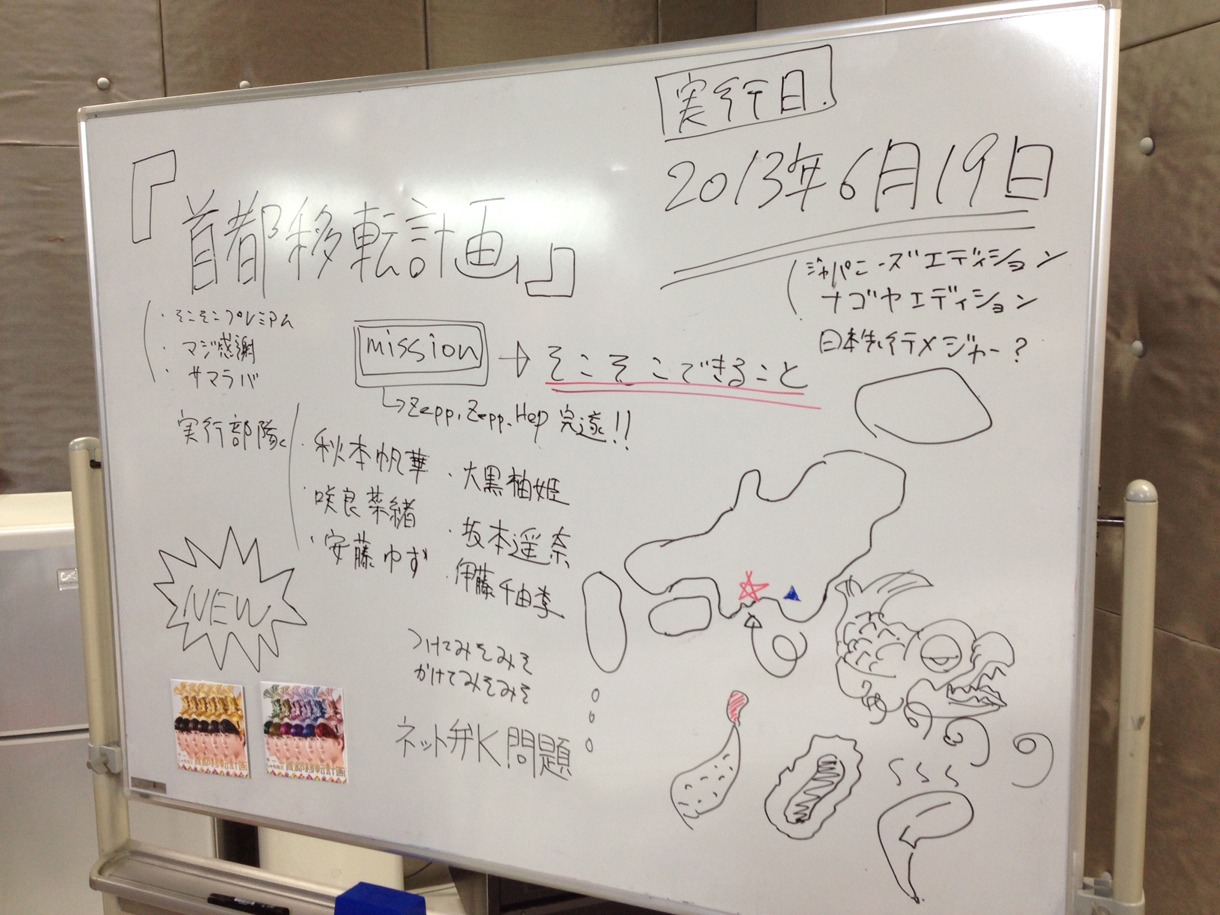 実行日
2013年6月19日
『首都移転計画』
ジャパニーズエディション
ナゴヤエディション
日本先行メジャー?
・そこそこプレミアム
・マジ感謝
・サマラバ
mission
そこそこできること
Zepp, Zepp, Hep 完遂!!
実行部隊
・秋本帆華 ・大黒柚姫
・咲良菜緒 ・坂本遥奈
・安藤ゆず ・伊藤千由李
NEW
つけてみそみそ
かけてみそみそ
ネット弁K問題
首都移転計画
首都移転計画